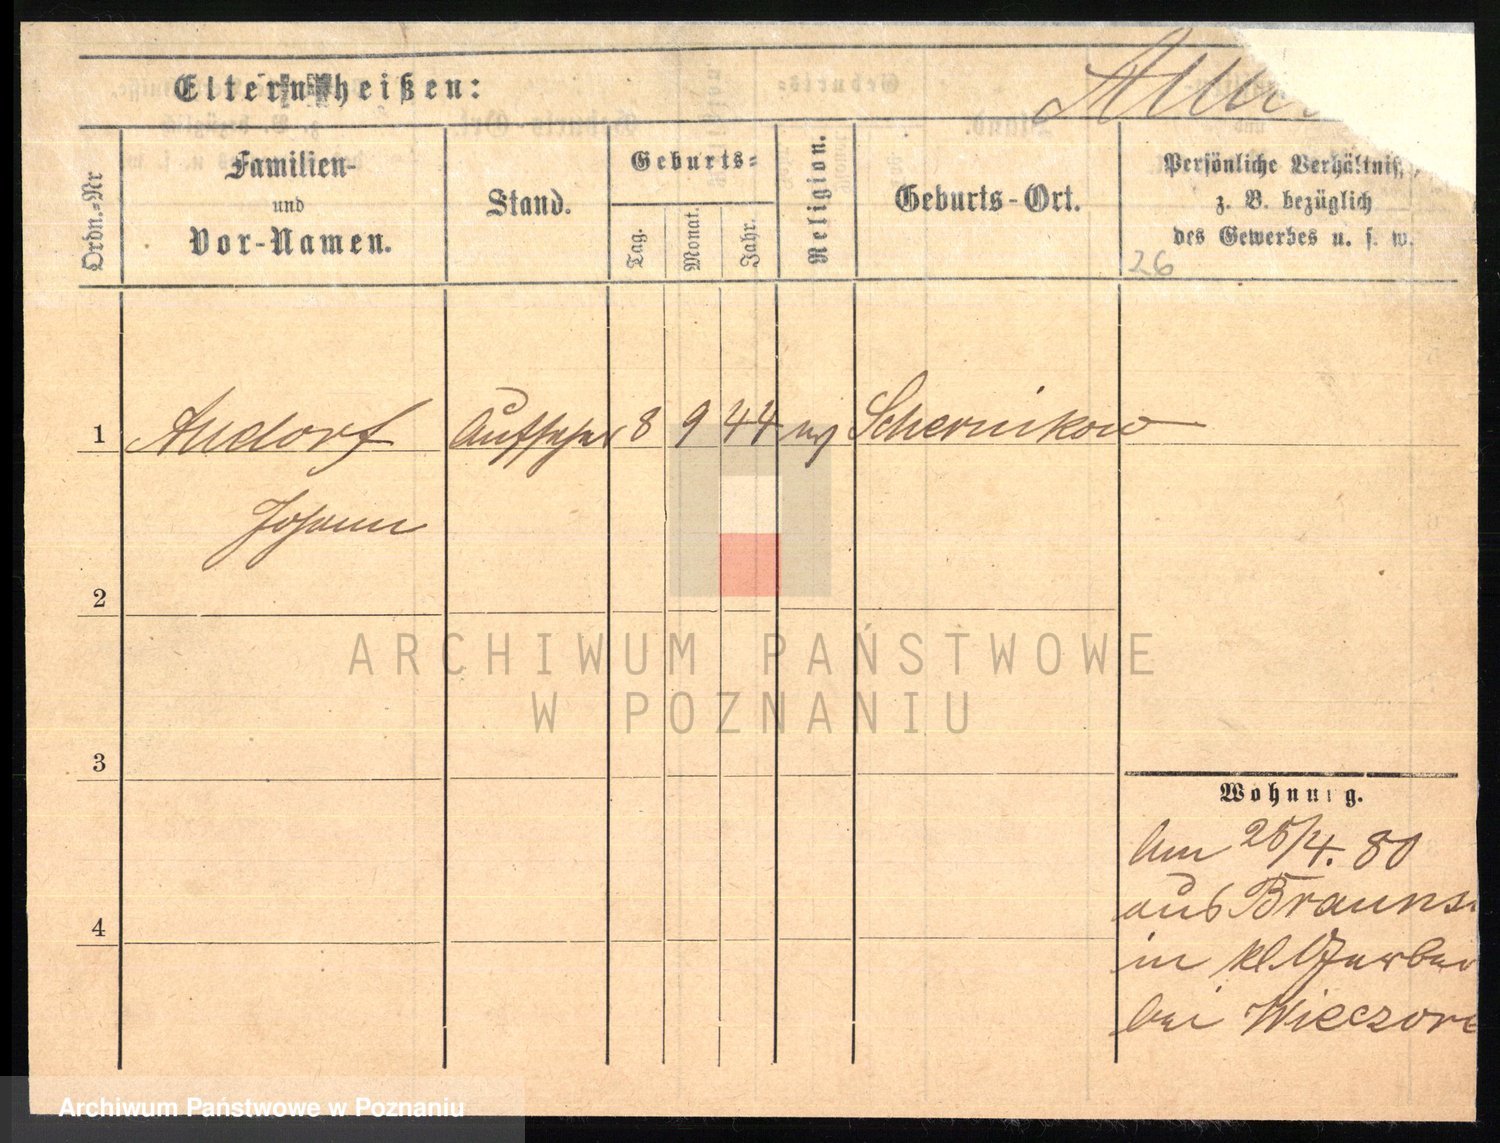 Eltern heißen:
Ordn.-Nr
Familien-
und
Vor-Namen.
Stand.
Geburts-
Tag.
Monat.
Jahr.
Religion.
Geburts-Ort.
Persönliche Verhältniss
z. B. bezüglich
des Gewerbes u. s. w.
26
1 Andorf Aufseher 8 9 44 ev Schernikow
Johann
2
ARCHIWUM PAŃSTWOWE
W POZNANIU
3
Wohnung.
Am 28/4. 80
aus Brauns
in kl. Gerber
bei Wieczore
4
Archiwum Państwowe w Poznaniu